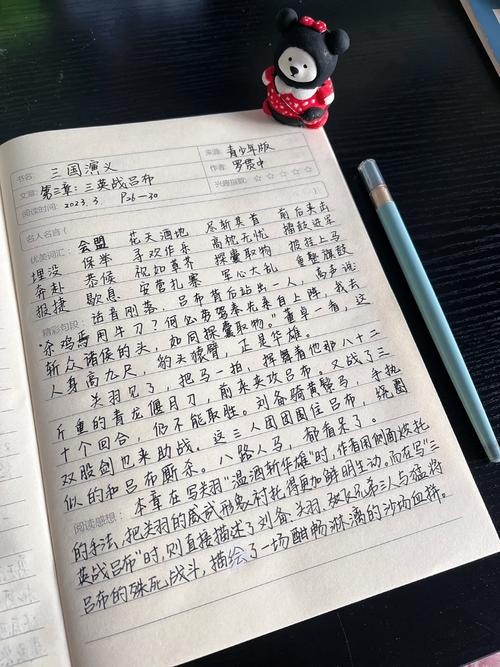 书名: 三国演义 来源: 青少年版
文章: 第三章：三英战吕布 作者: 罗贯中
阅读时间: 2023.3. P26-30 兴趣指数: ☆☆☆☆☆
名人名言(
优美词汇: 会盟 花天酒地 尽斩其首 前后夹击
埋没 保举 寻欢作乐 高枕无忧 擂鼓进军
奔赴 恭候 视如草芥 探囊取物 披挂上马
报捷 歇息 安营扎寨 军心大乱 重整旗鼓
精彩句段: 话音刚落，吕布背后站出一人，高声说:
“杀鸡焉用牛刀？何必劳驾奉先亲自上阵，我去
斩众诸侯的头，如同探囊取物。”董卓一看，这
人身高九尺，豹头猿臂，正是华雄。
关羽见了，把马一拍，挥舞着他那八十二
斤重的青龙偃月刀，前来夹攻吕布。又战了三
十个回合，仍不能取胜。刘备骑黄鬃马，手执
双股剑也来助战。这三人团团围住吕布，绕圈
似的和吕布厮杀。八路人马，都看呆了。
阅读感想: 本章在写关羽“温酒斩华雄”时，作者用侧面烘托
的手法，把关羽的威武形象衬托得更加鲜明生动。而在写“三
英战吕布”时，则直接描述了刘备、关羽、张飞兄弟三人与猛将
吕布的殊死战斗，描绘了一场酣畅淋漓的沙场血拼。